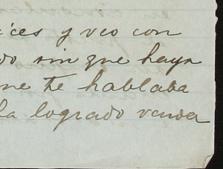 ices y veo con
do sin que haya
me te hablaba
la logrado venda